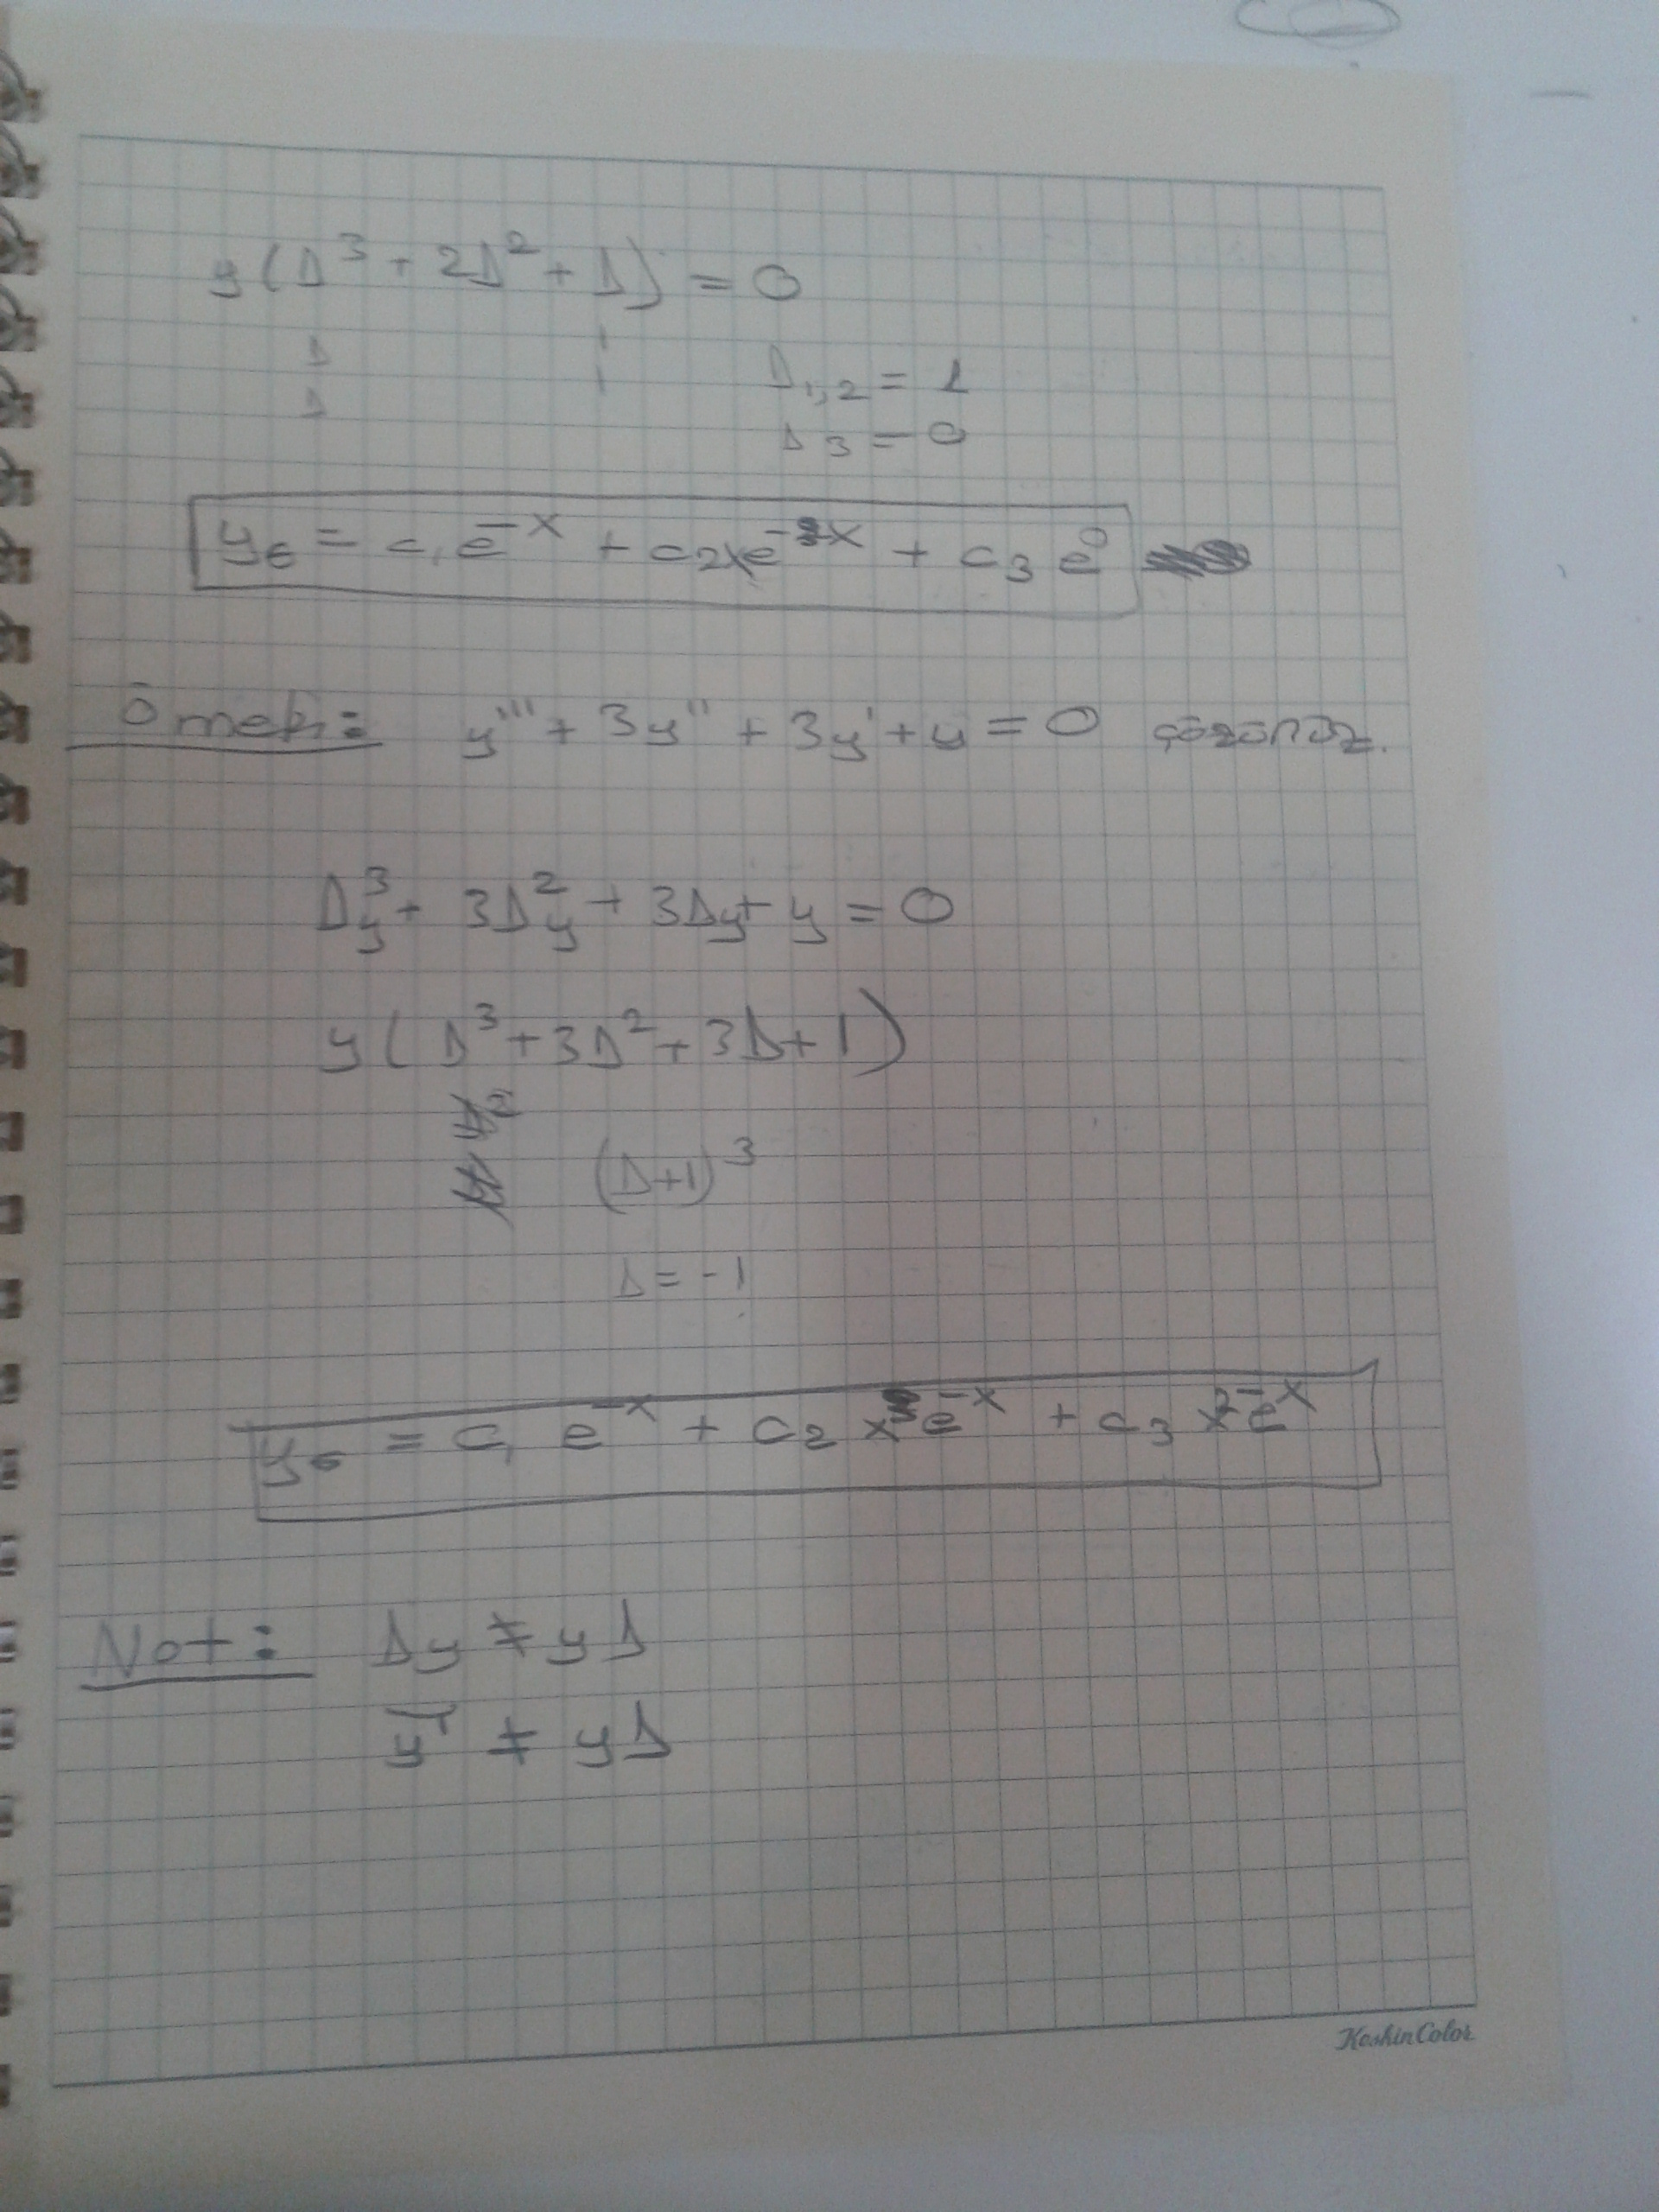 y(Δ³ + 2Δ² + Δ) = 0
Δ 1 Δ₁,₂ = 1
Δ 1 Δ₃ = 0
yG = c₁e⁻ˣ + c₂xe⁻ˣ + c₃e⁰
Örnek: y''' + 3y'' + 3y' + y = 0 çözünüz.
Δ³y + 3Δ²y + 3Δy + y = 0
y(Δ³ + 3Δ² + 3Δ + 1)
(Δ+1)³
Δ = -1
yG = c₁ e⁻ˣ + c₂ x e⁻ˣ + c₃ x² e⁻ˣ
Not: Δy ≠ yΔ
y' ≠ yΔ
KeskinColor